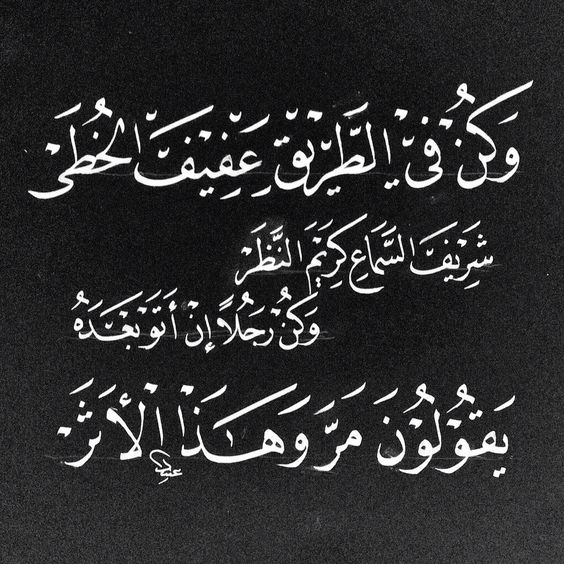 وَكُنْ فِي الطَّرِيْقِ عَفِيفَ الخُطَى
شَرِيْفَ السَّمَاعِ كَرِيْمَ النَّظَرْ
وَكُنْ رَجُلًا إِنْ أَتَوْ بَعْدَهُ
يَقُوْلُوْنَ مَرَّ وَهَذَا الأَثَرْ